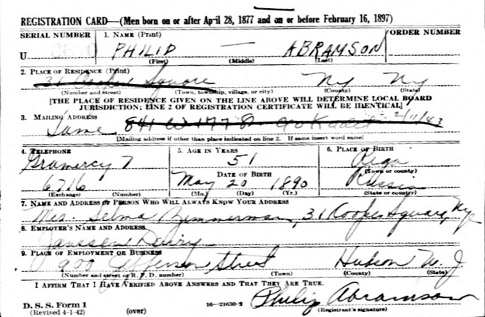 REGISTRATION CARD—(Men born on or after April 28, 1877 and on or before February 16, 1897)
SERIAL NUMBER 1. NAME (Print) ORDER NUMBER
U PHILIP ABRAMSON
(First) (Middle) (Last)
2. PLACE OF RESIDENCE (Print)
Square Ny Ny
(Number and street) (Town, township, village, or city) (County) (State)
[THE PLACE OF RESIDENCE GIVEN ON THE LINE ABOVE WILL DETERMINE LOCAL BOARD
JURISDICTION; LINE 2 OF REGISTRATION CERTIFICATE WILL BE IDENTICAL]
3. MAILING ADDRESS
Same 841 W 177
[Mailing address if other than place indicated on line 2. If same insert word same]
4. TELEPHONE 5. AGE IN YEARS 6. PLACE OF BIRTH
Gramercy 7 51 Riga
DATE OF BIRTH (Town or county)
6716 May 20 1890 Russia
(Exchange) (Number) (Mo.) (Day) (Yr.) (State or country)
7. NAME AND ADDRESS OF PERSON WHO WILL ALWAYS KNOW YOUR ADDRESS
Mrs. Selma Zimmerman, 31 Cooper Square, Ny
8. EMPLOYER'S NAME AND ADDRESS
Janssen Dairy
9. PLACE OF EMPLOYMENT OR BUSINESS
Jefferson Street Hudson N.J
(Number and street or R. F. D. number) (Town) (County) (State)
I AFFIRM THAT I HAVE VERIFIED ABOVE ANSWERS AND THAT THEY ARE TRUE.
D. S. S. Form 1 16—21630-2 Philip Abramson
(Revised 4-1-42) (over) (Registrant's signature)